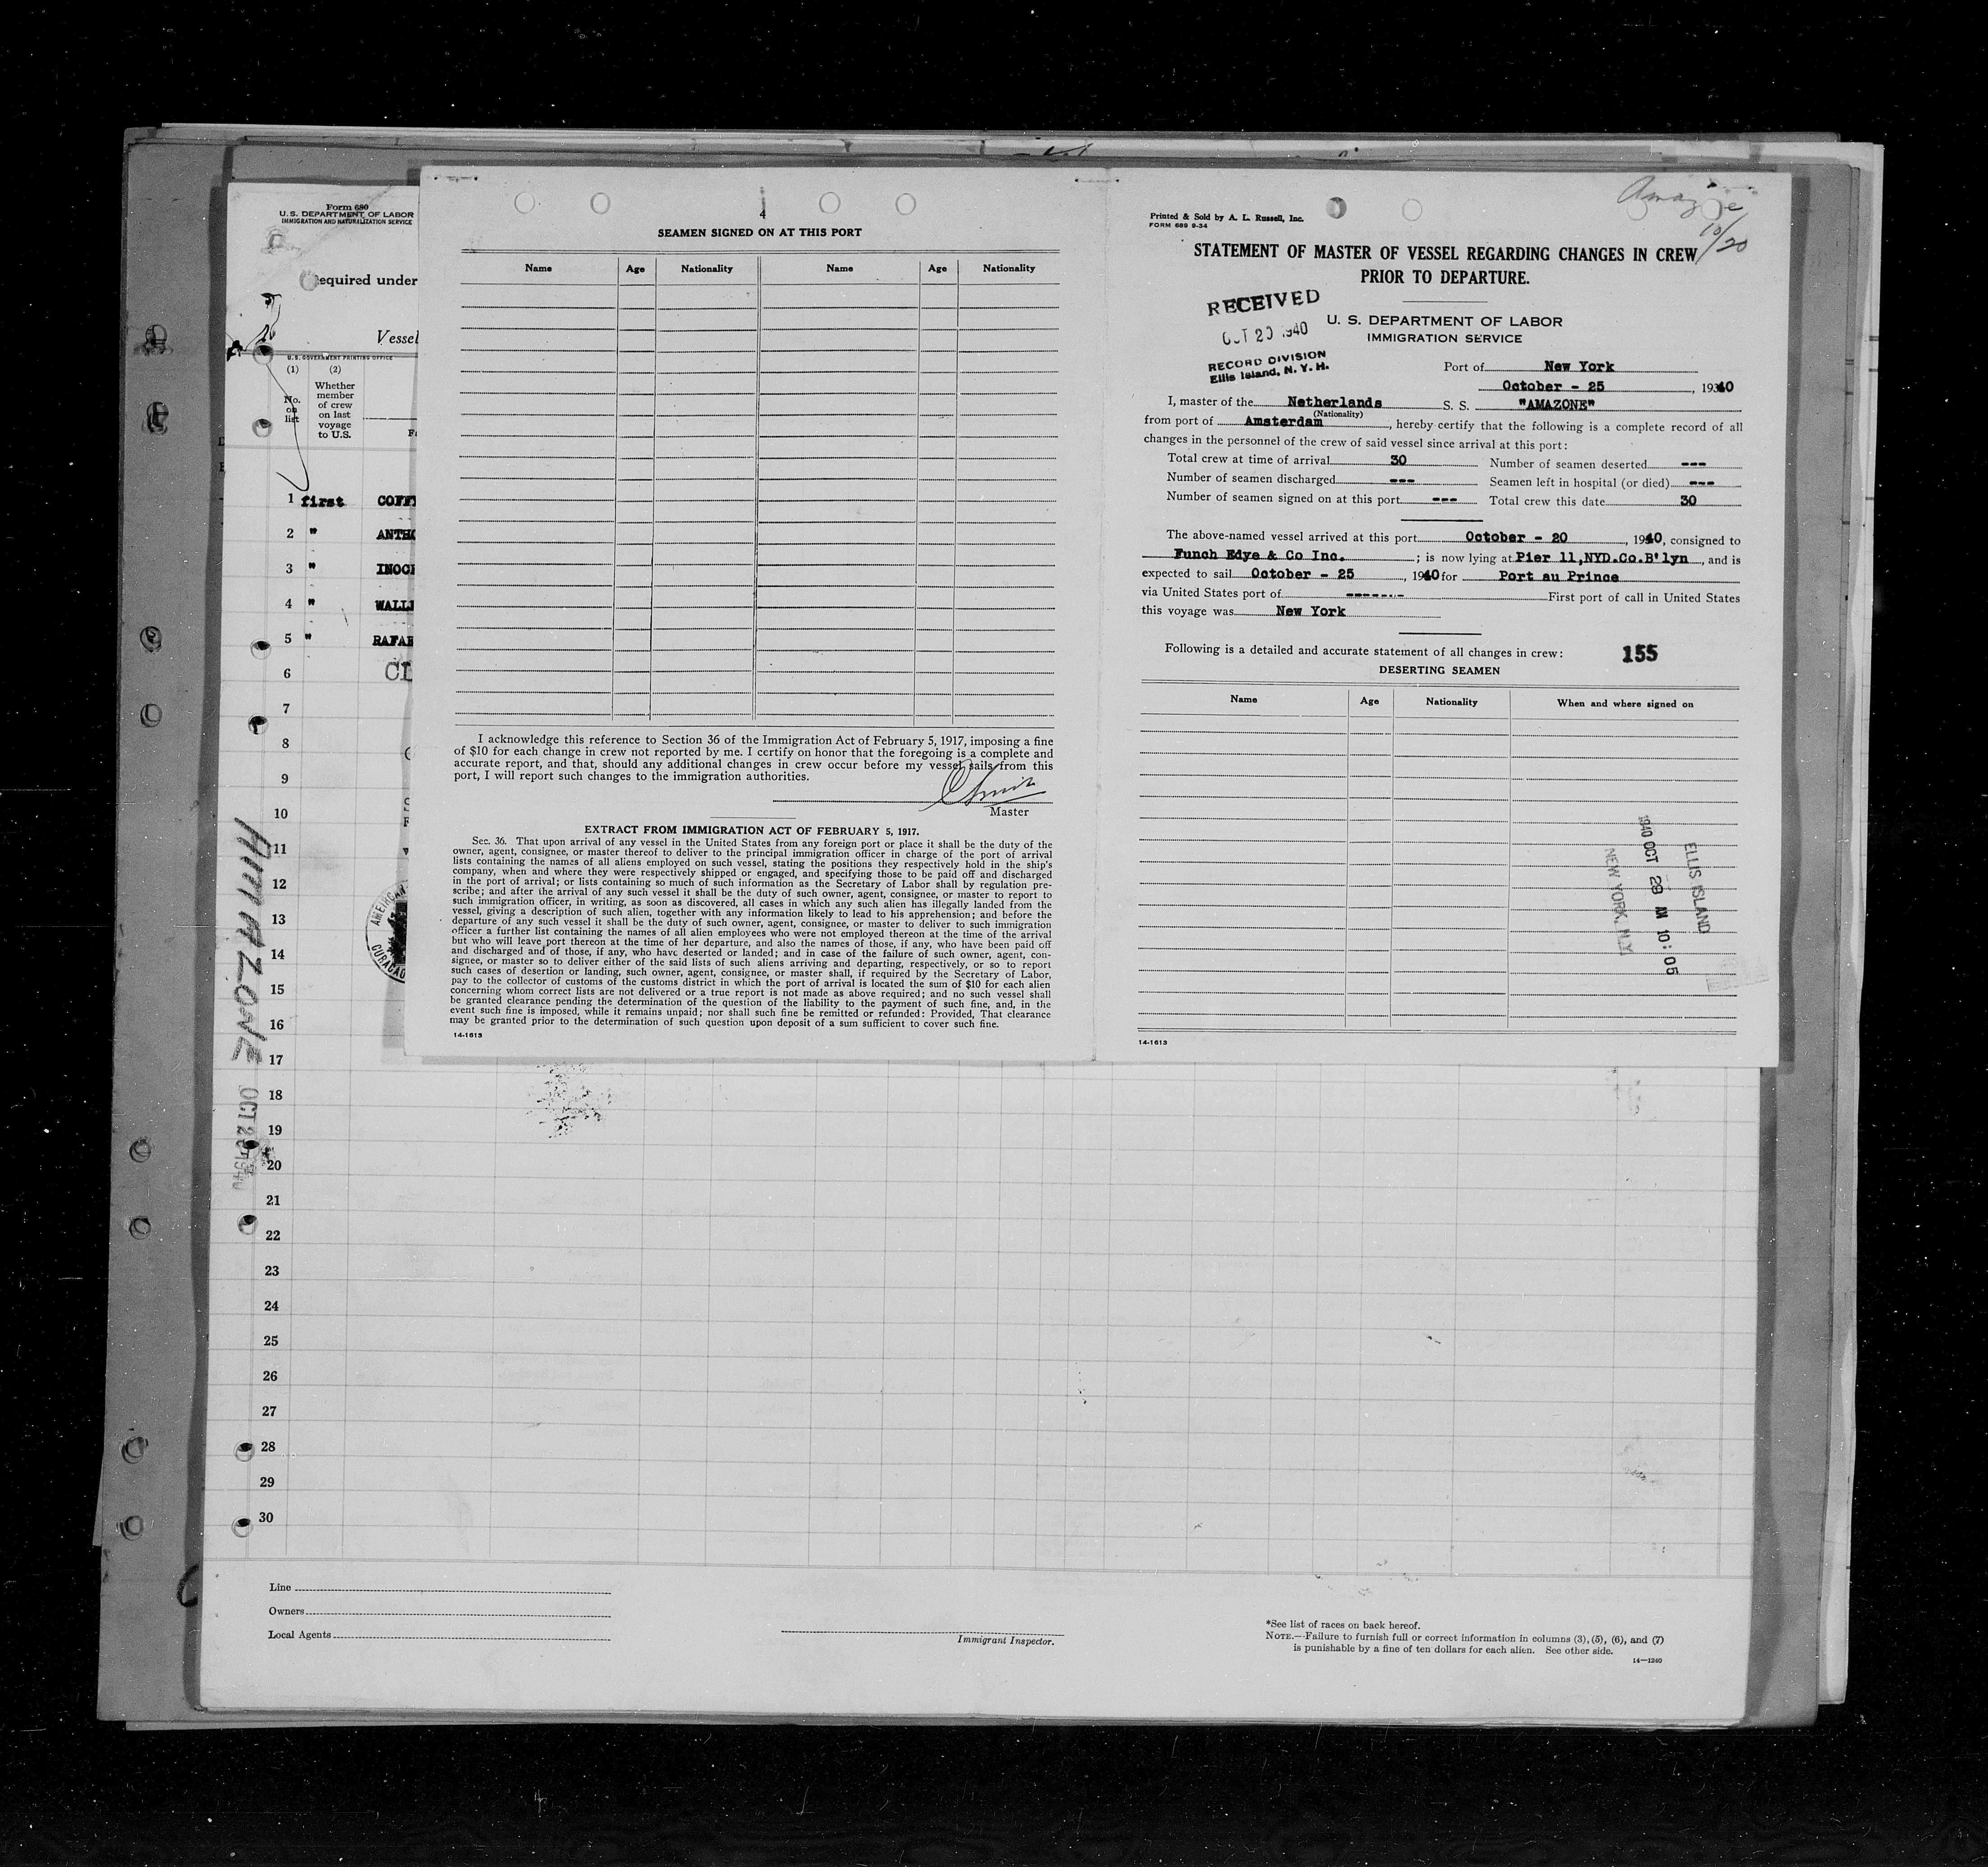 Form 680
U. S. DEPARTMENT OF LABOR
IMMIGRATION AND NATURALIZATION SERVICE
equired under
Vessel
U. S. GOVERNMENT PRINTING OFFICE
(1) (2)
No. on list
Whether member of crew on last voyage to U.S.
1 first COFFY
2 " ANTHO
3 " INOCE
4 " WALLI
5 " RAFAE
6 CL
7
8
9
10
11
12
13
14
15
16
17
18
19
20
21
22
23
24
25
26
27
28
29
30
AMAZONE OCT 20 1940
AMERICAN
CURACAO
Line
Owners
Local Agents
Immigrant Inspector.
*See list of races on back hereof.
NOTE.—Failure to furnish full or correct information in columns (3), (5), (6), and (7)
is punishable by a fine of ten dollars for each alien. See other side.
14—1240
4
SEAMEN SIGNED ON AT THIS PORT
Name Age Nationality Name Age Nationality
I acknowledge this reference to Section 36 of the Immigration Act of February 5, 1917, imposing a fine
of $10 for each change in crew not reported by me. I certify on honor that the foregoing is a complete and
accurate report, and that, should any additional changes in crew occur before my vessel sails from this
port, I will report such changes to the immigration authorities.
Master
EXTRACT FROM IMMIGRATION ACT OF FEBRUARY 5, 1917.
Sec. 36. That upon arrival of any vessel in the United States from any foreign port or place it shall be the duty of the
owner, agent, consignee, or master thereof to deliver to the principal immigration officer in charge of the port of arrival
lists containing the names of all aliens employed on such vessel, stating the positions they respectively hold in the ship's
company, when and where they were respectively shipped or engaged, and specifying those to be paid off and discharged
in the port of arrival; or lists containing so much of such information as the Secretary of Labor shall by regulation pre-
scribe; and after the arrival of any such vessel it shall be the duty of such owner, agent, consignee, or master to report to
such immigration officer, in writing, as soon as discovered, all cases in which any such alien has illegally landed from the
vessel, giving a description of such alien, together with any information likely to lead to his apprehension; and before the
departure of any such vessel it shall be the duty of such owner, agent, consignee, or master to deliver to such immigration
officer a further list containing the names of all alien employees who were not employed thereon at the time of the arrival
but who will leave port thereon at the time of her departure, and also the names of those, if any, who have been paid off
and discharged and of those, if any, who have deserted or landed; and in case of the failure of such owner, agent, con-
signee, or master so to deliver either of the said lists of such aliens arriving and departing, respectively, or so to report
such cases of desertion or landing, such owner, agent, consignee, or master shall, if required by the Secretary of Labor,
pay to the collector of customs of the customs district in which the port of arrival is located the sum of $10 for each alien
concerning whom correct lists are not delivered or a true report is not made as above required; and no such vessel shall
be granted clearance pending the determination of the question of the liability to the payment of such fine, and, in the
event such fine is imposed, while it remains unpaid; nor shall such fine be remitted or refunded: Provided, That clearance
may be granted prior to the determination of such question upon deposit of a sum sufficient to cover such fine.
14-1613
Amazone
10/20
Printed & Sold by A. L. Russell, Inc.
FORM 689 9-34
STATEMENT OF MASTER OF VESSEL REGARDING CHANGES IN CREW
PRIOR TO DEPARTURE.
RECEIVED
OCT 29 1940
RECORD DIVISION
Ellis Island, N. Y. H.
U. S. DEPARTMENT OF LABOR
IMMIGRATION SERVICE
Port of New York
October - 25, 1940
I, master of the Netherlands S. S. "AMAZONE"
(Nationality)
from port of Amsterdam, hereby certify that the following is a complete record of all
changes in the personnel of the crew of said vessel since arrival at this port:
Total crew at time of arrival 30 Number of seamen deserted ---
Number of seamen discharged --- Seamen left in hospital (or died) ---
Number of seamen signed on at this port --- Total crew this date 30
The above-named vessel arrived at this port October - 20, 1940, consigned to
Funch Edye & Co Inc. ; is now lying at Pier 11,NYD.Co.B'lyn, and is
expected to sail October - 25, 1940 for Port au Prince
via United States port of ------- First port of call in United States
this voyage was New York
Following is a detailed and accurate statement of all changes in crew: 155
DESERTING SEAMEN
Name Age Nationality When and where signed on
ELLIS ISLAND
1940 OCT 29 AM 10:05
NEW YORK, N.Y.
14-1613